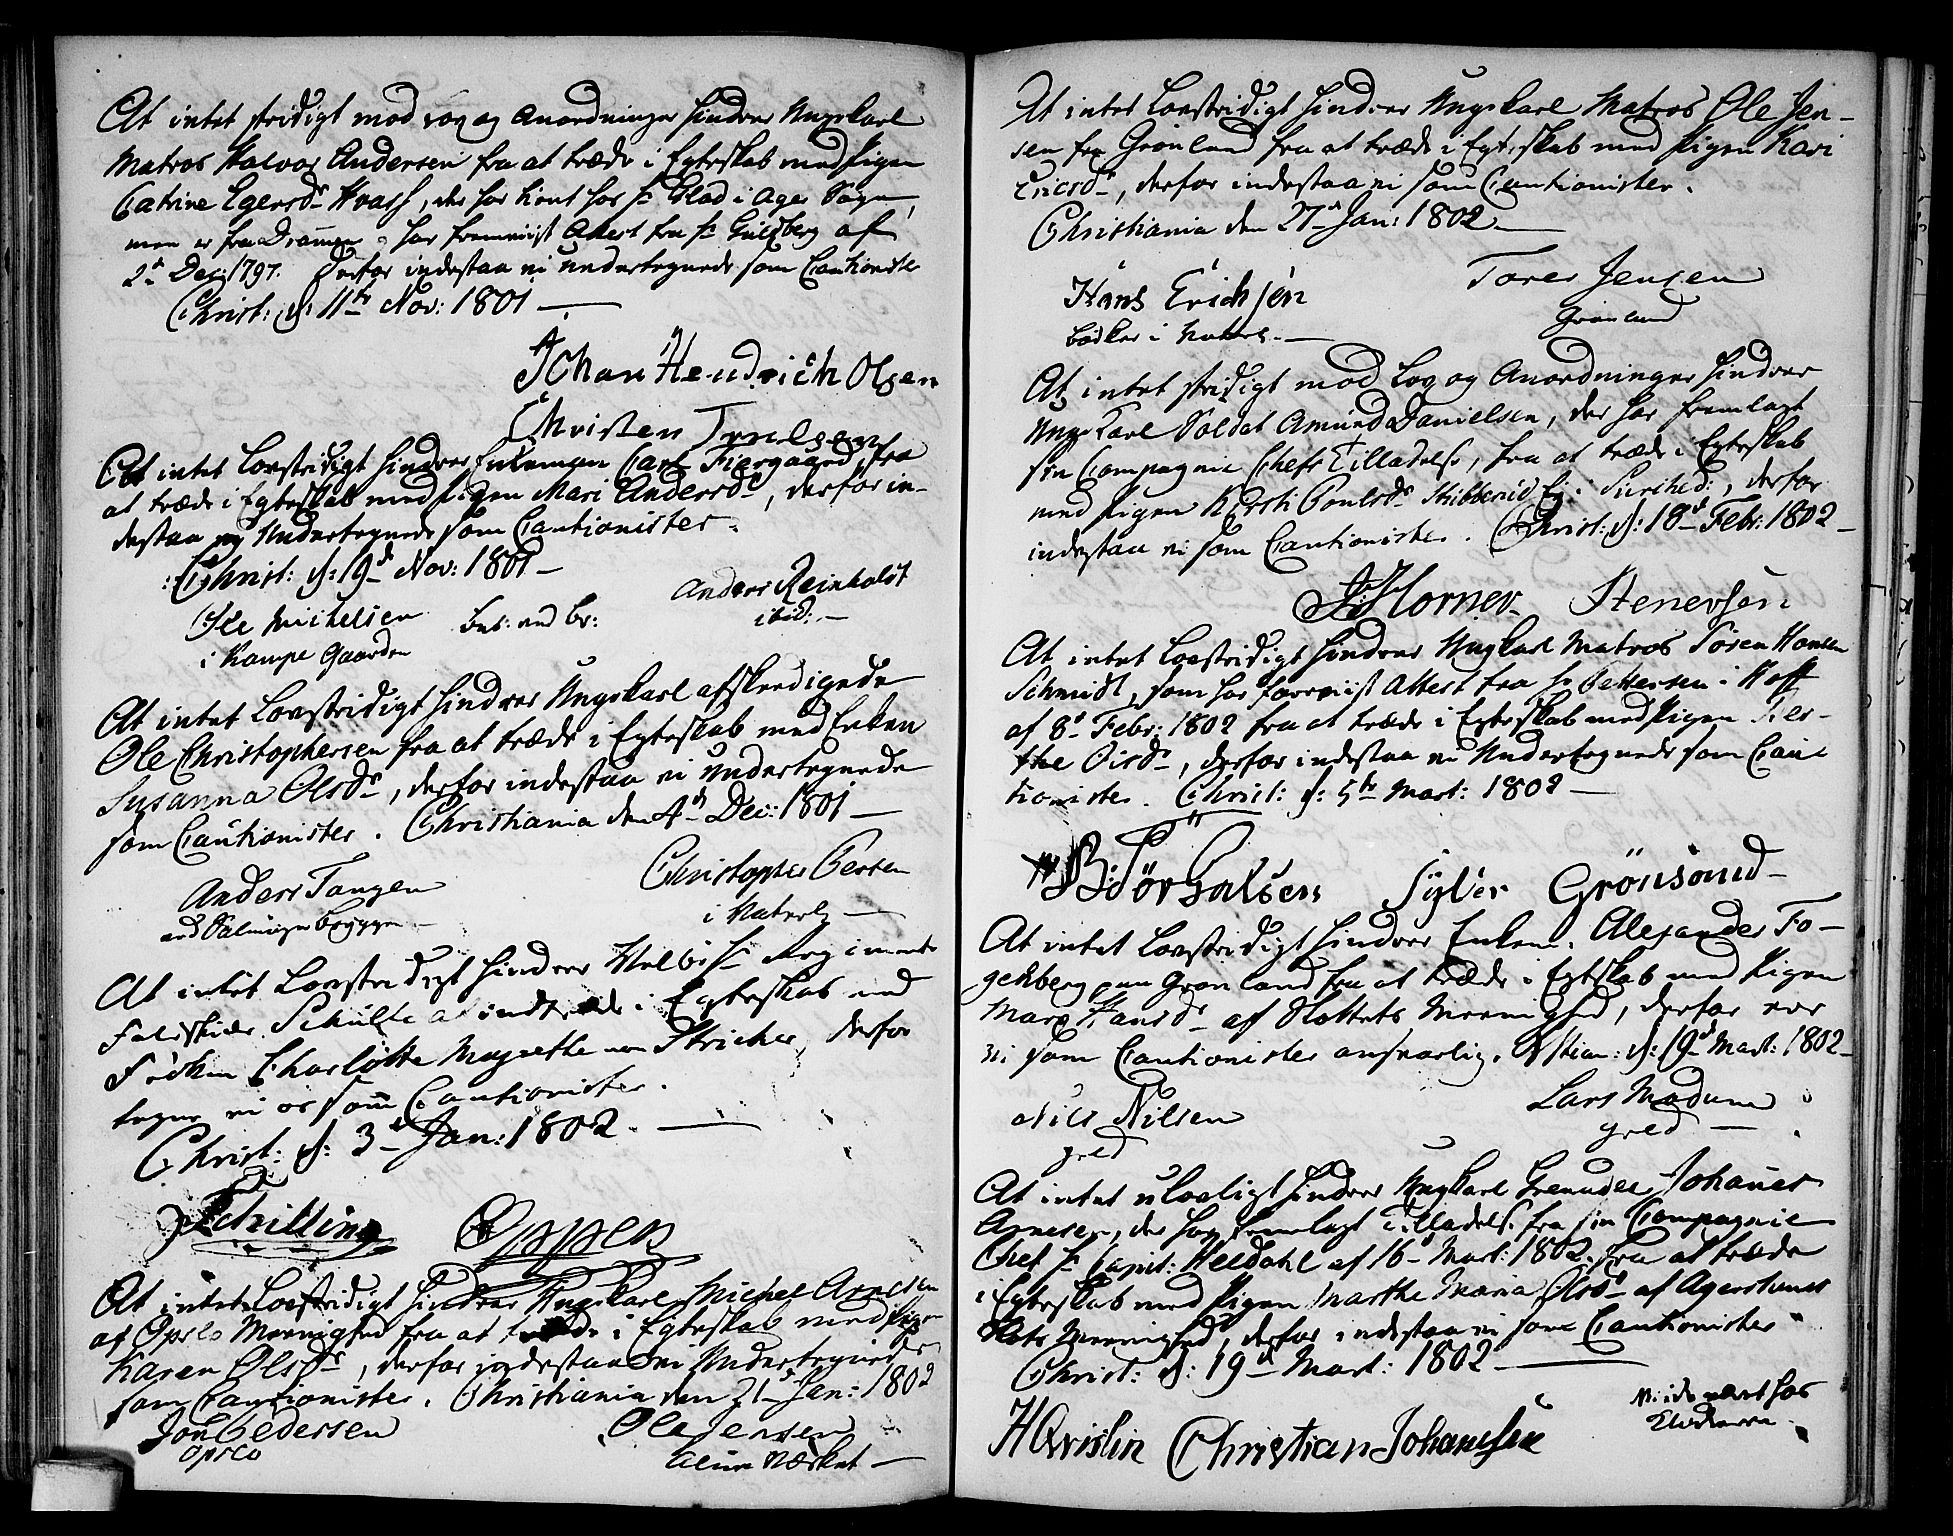 At intet stridigt mod Lov og Anordninger hindrer Ungekarl
Matros Halvor Andersen fra at træde i Egteskab med Pigen
Catrine Egersdr Hvass, der har tient hos Hr Glad i Ager Sogn,
men er fra Drammen, har fremviist Attest fra Hr Guldberg af
2d Dec: 1797. Derfor indestaa vi Undertegnede som Cautionister
Christ: d: 11te Nov: 1801
Johan Hendrich Olsen
Christen
At intet Lovstridigt hindrer Enkeman Carl Fiergaard fra
at træde i Egteskab med Pigen Mari Andersdr, derfor in-
destaa vi Undertegnede som Cautionister.
Christ: d: 19d Nov: 1801
Ole Michelsen Anders Reinholdt
i Kampe Gaarden ibid:
At intet Lovstridigt hindrer Ungekarl afskedigede
Ole Christophersen fra at træde i Egteskab med Enken
Susanna Olsdr, derfor indestaa vi Undertegnede
som Cautionister. Christiania den 4d Dec: 1801
Anders Tangen Christopher Persen
ved
At intet Lovstridigt hindrer Regiments
Feldskiær Schülte at indtræde i Egteskab med
Frøken Charlotte Magrethe von Stricker, derfor
tegne vi os som Cautionister.
Christ: d: 3d Jan: 1802
Schilling Oppen
At intet Lovstridigt hindrer Ungekarl Michel Arnesen
af Opslo Menighed fra at træde i Egteskab med Pigen
Karen Olsdr, derfor indestaa vi Undertegnede
som Cautionister. Christiania den 21 Jan: 1802
Jon Pedersen Ole Jensen
Opslo Alun Værket
At intet Lovstridigt hindrer Ungekarl Matros Ole Jen-
sen fra Grønland fra at træde i Egteskab med Pigen Kari
Ericsdr, derfor indestaa vi som Cautionister.
Christiania den 27d Jan: 1802
Hans Erichsen Tores Jensen
bødker i Grønland
At intet stridigt mod Lov og Anordninger hindrer
Ungekarl Soldat Amund Danielsen, der har fremlagt
sin Compagnie Chefs Tilladelse, fra at træde i Egteskab
med Pigen Kersti Poulsdr , derfor
indestaa vi som Cautionister. Christ: d: 18d Febr: 1802
Horner Stenersen
At intet Lovstridigt hindrer Ungkarl Matros Søren Hansen
Schmidt, som har foreviist Attest fra Hr Pettersen i Hoff
af 8d Febr: 1802 fra at træde i Egteskab med Pigen Ker-
the Oisdr, derfor indestaa vi Undertegnede som Cau-
tionister. Christ: d: 5te Mart: 1802
Grönsund
At intet Lovstridigt hindrer Enkem. Alexander Fo-
gekberg paa Grønland fra at træde i Egtskab med Pigen
Mare Hansdr af Slottets Menighed, derfor ere
vi som Cautionister ansvarlig. Xstian: d: 19d Mart: 1802
Nils Nilsen Lars Modum
At intet ulovligt hindrer Ungkarl Grenadeer Johanes
Arnesen, der har fremlagt Tilladelse fra sin Compagnie
Chef Hr Capit: Heldahl af 16d Mart: 1802 fra at træde
i Egteskab med Pigen Marthe Maria Olsdr af Agershuus
Slots Menighed, derfor indestaa vi som Cautionister
Christ: d: 19d Mart: 1802
H Qvislin Christian Johannsen